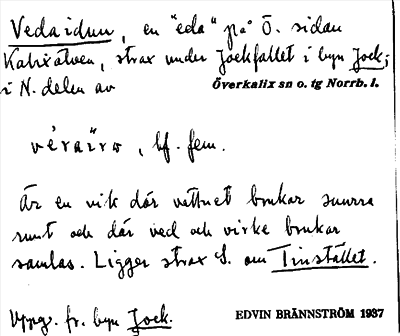 Vedaidun, en "eda" på Ö. sidan
Kalixälven, strax under Jockfallet i byn Jock;
i N. delen av Överkalix sn o. tg Norrb. l.
, bf. fem.
Är en vik där vattnet brukar snurra
runt och där ved och virke brukar
samlas. Ligger strax S. om Tinstället.
Uppg. fr. byn Jock. EDVIN BRÄNNSTRÖM 1937